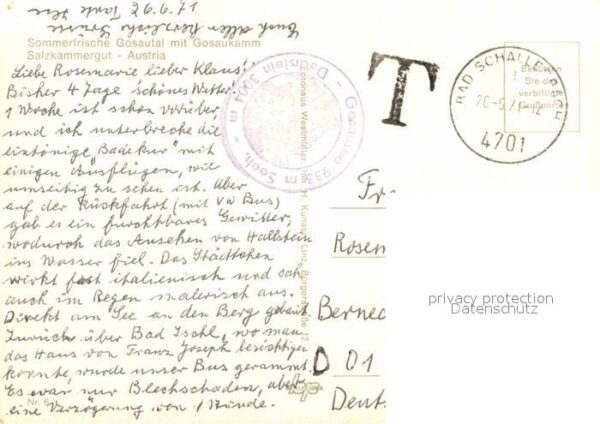 26.6.71
Euch allen herzliche Grüsse
Tante
Sommerfrische Gosautal mit Gosaukamm
Salzkammergut - Austria
Liebe Rosemarie lieber Klaus!
Bisher 4 Tage schönes Wetter.
1 Woche ist schon vorüber
und ich unterbreche die
eintönige "Badekur" mit
einigen Ausflügen, wie
umseitig zu sehen ist. Aber
auf der Rückfahrt (mit VW Bus)
gab es ein furchtbares Gewitter,
wodurch das Ansehen von Hallstein
ins Wasser fiel. Das Städtchen
wirkt fast italienisch und sah
auch im Regen malerisch aus.
Direkt am See an den Berg gebaut.
Zurück über Bad Ischl, wo man
das Haus von Franz Joseph besichtigen
konnte wurde unser Bus gerammt.
Es war nur Blechschaden, aber
eine Verzögerung von 1 Stunde.
Nr. 8
Gosausee 933 m Seeh. - Dachstein 3004 m
T
BAD SCHALLERBACH
4701
Fr
Rosem
Berneck
D 01
Deuts
privacy protection
Datenschutz